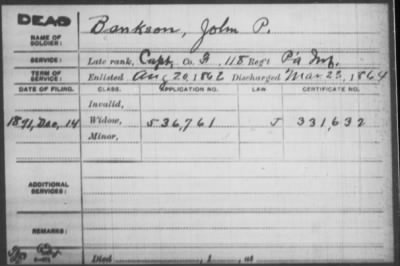 DEAD
NAME OF SOLDIER: Bankson, John P.
SERVICE: Late rank, Capt, Co. G, 118 Reg't Pa Inf.
TERM OF SERVICE: Enlisted Aug 20, 1862 Discharged Mar 23, 1864
DATE OF FILING. CLASS. APPLICATION NO. LAW. CERTIFICATE NO.
Invalid,
1891, Dec, 14 Widow, 536,761 J 331,632
Minor,
ADDITIONAL SERVICES:
REMARKS:
Died , 1 , at